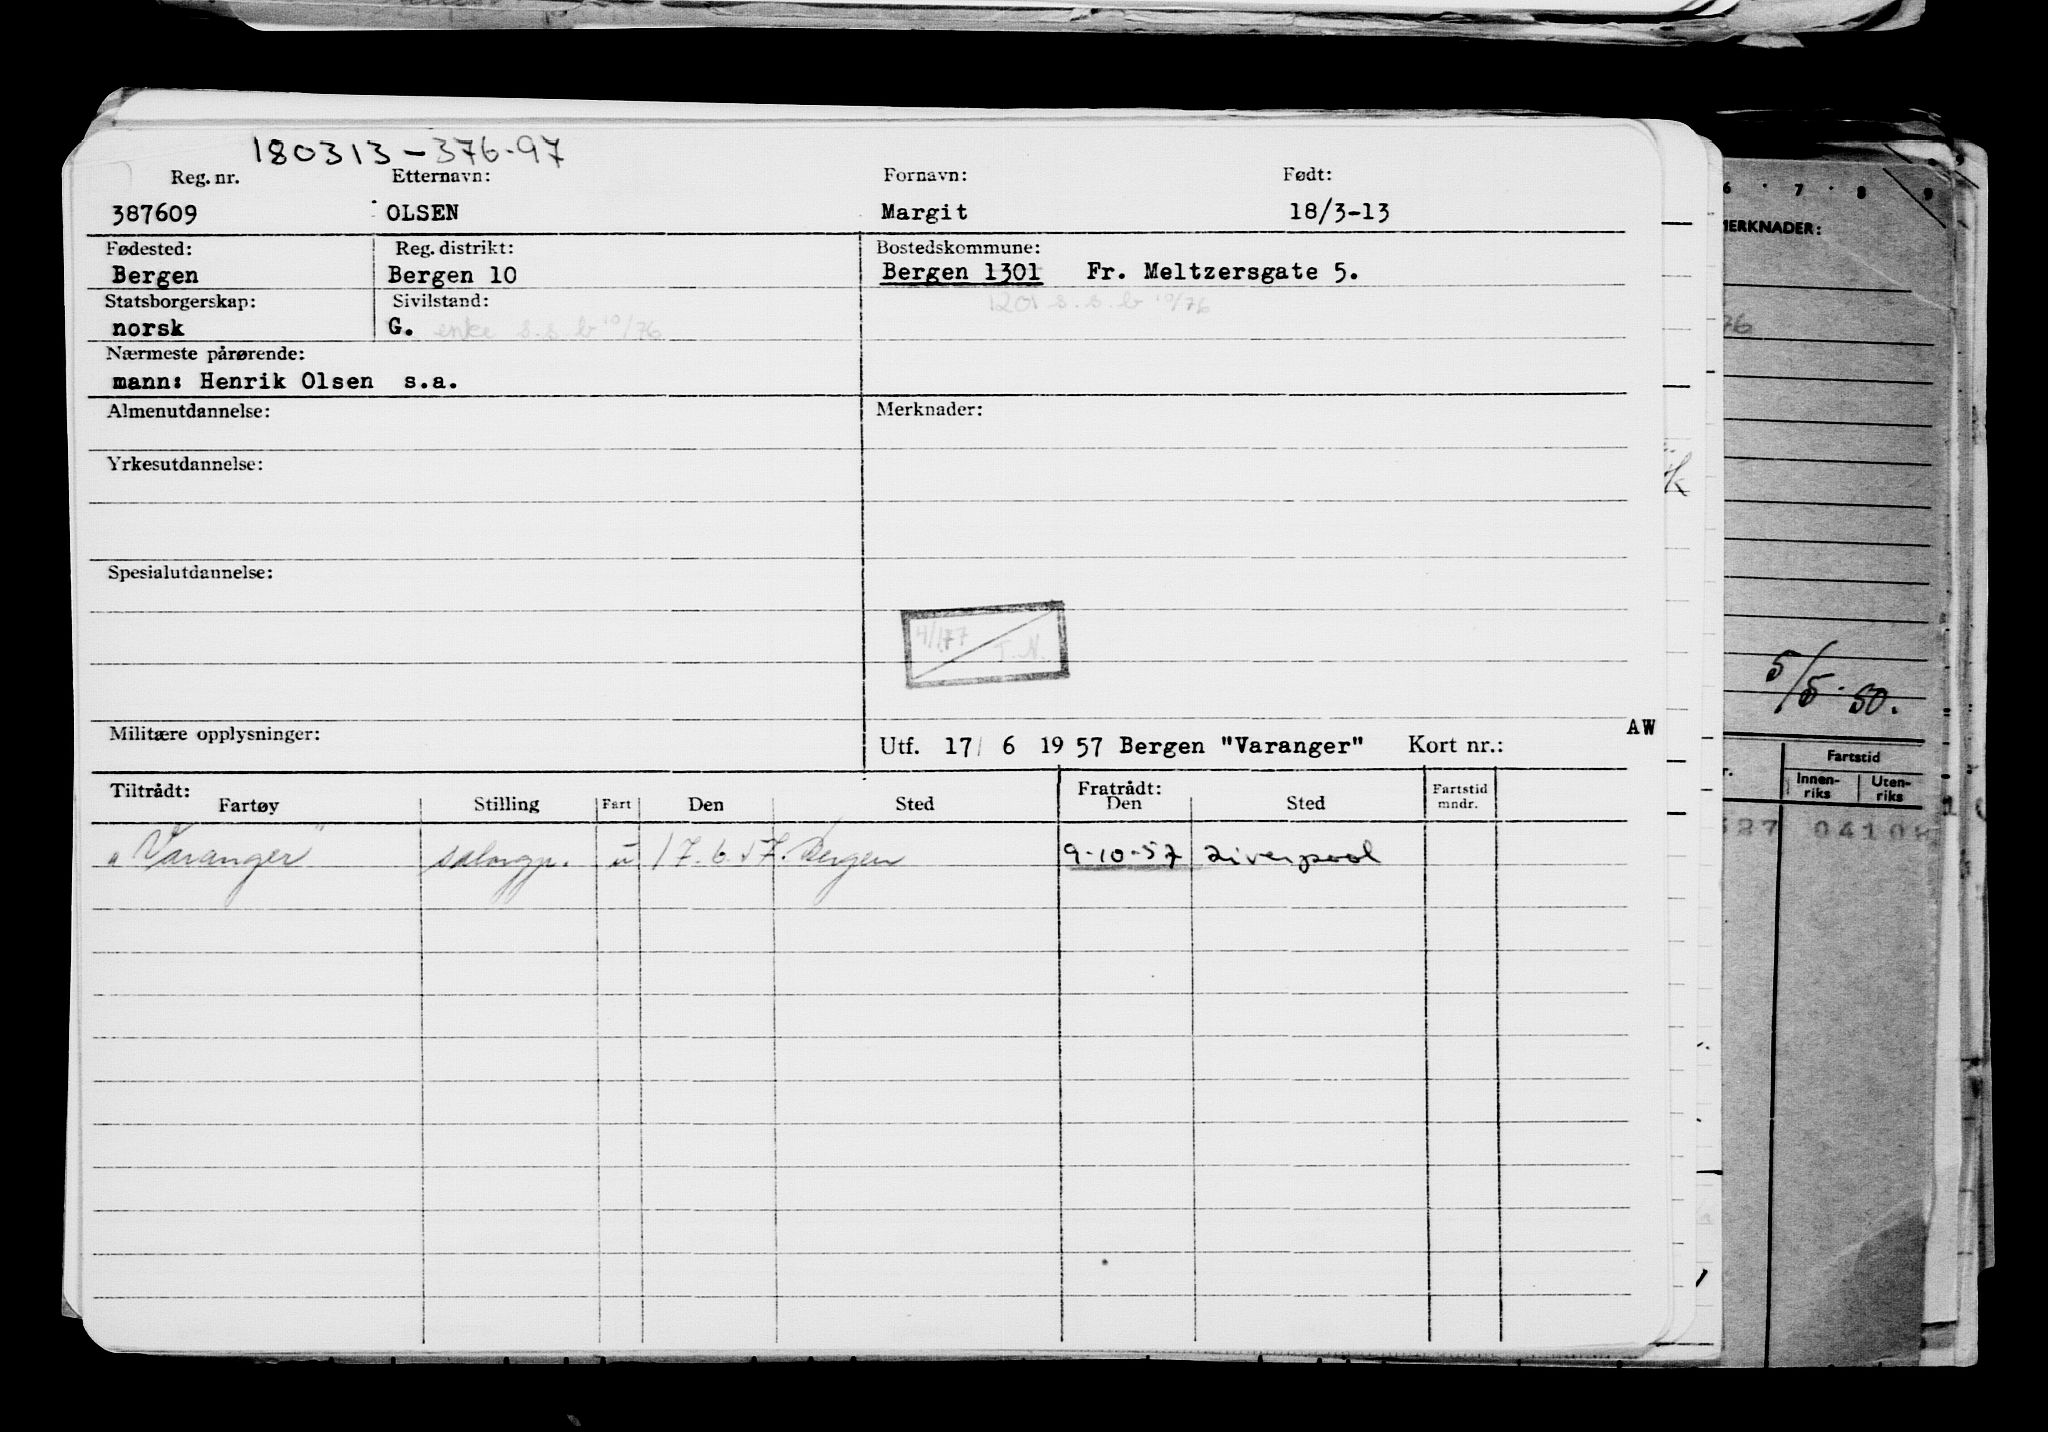 180313-376.97
Reg. nr. Etternavn: Fornavn: Født:
387609 OLSEN Margit 18/3-13
Fødested: Reg. distrikt: Bostedskommune:
Bergen Bergen 10 Bergen 1301 Fr. Meltzersgate 5.
Statsborgerskap: Sivilstand: 1201 s.s.b 10/76
norsk G. enke s.s.b 10/76
Nærmeste pårørende:
mann: Henrik Olsen s.a.
Almenutdannelse: Merknader:
Yrkesutdannelse:
Spesialutdannelse:
4/1 77 T.N.
Militære opplysninger: Utf. 17/ 6 1957 Bergen "Varanger" Kort nr.: AW
Tiltrådt: Fratrådt:
Fartøy Stilling Fart Den Sted Den Sted Fartstid mndr.
"Varanger" salongp. u 17.6.57. Bergen 9-10-57 Liverpool
6 7 8 9
MERKNADER:
76
5/5-80.
Fartstid
Innen-riks Uten-riks